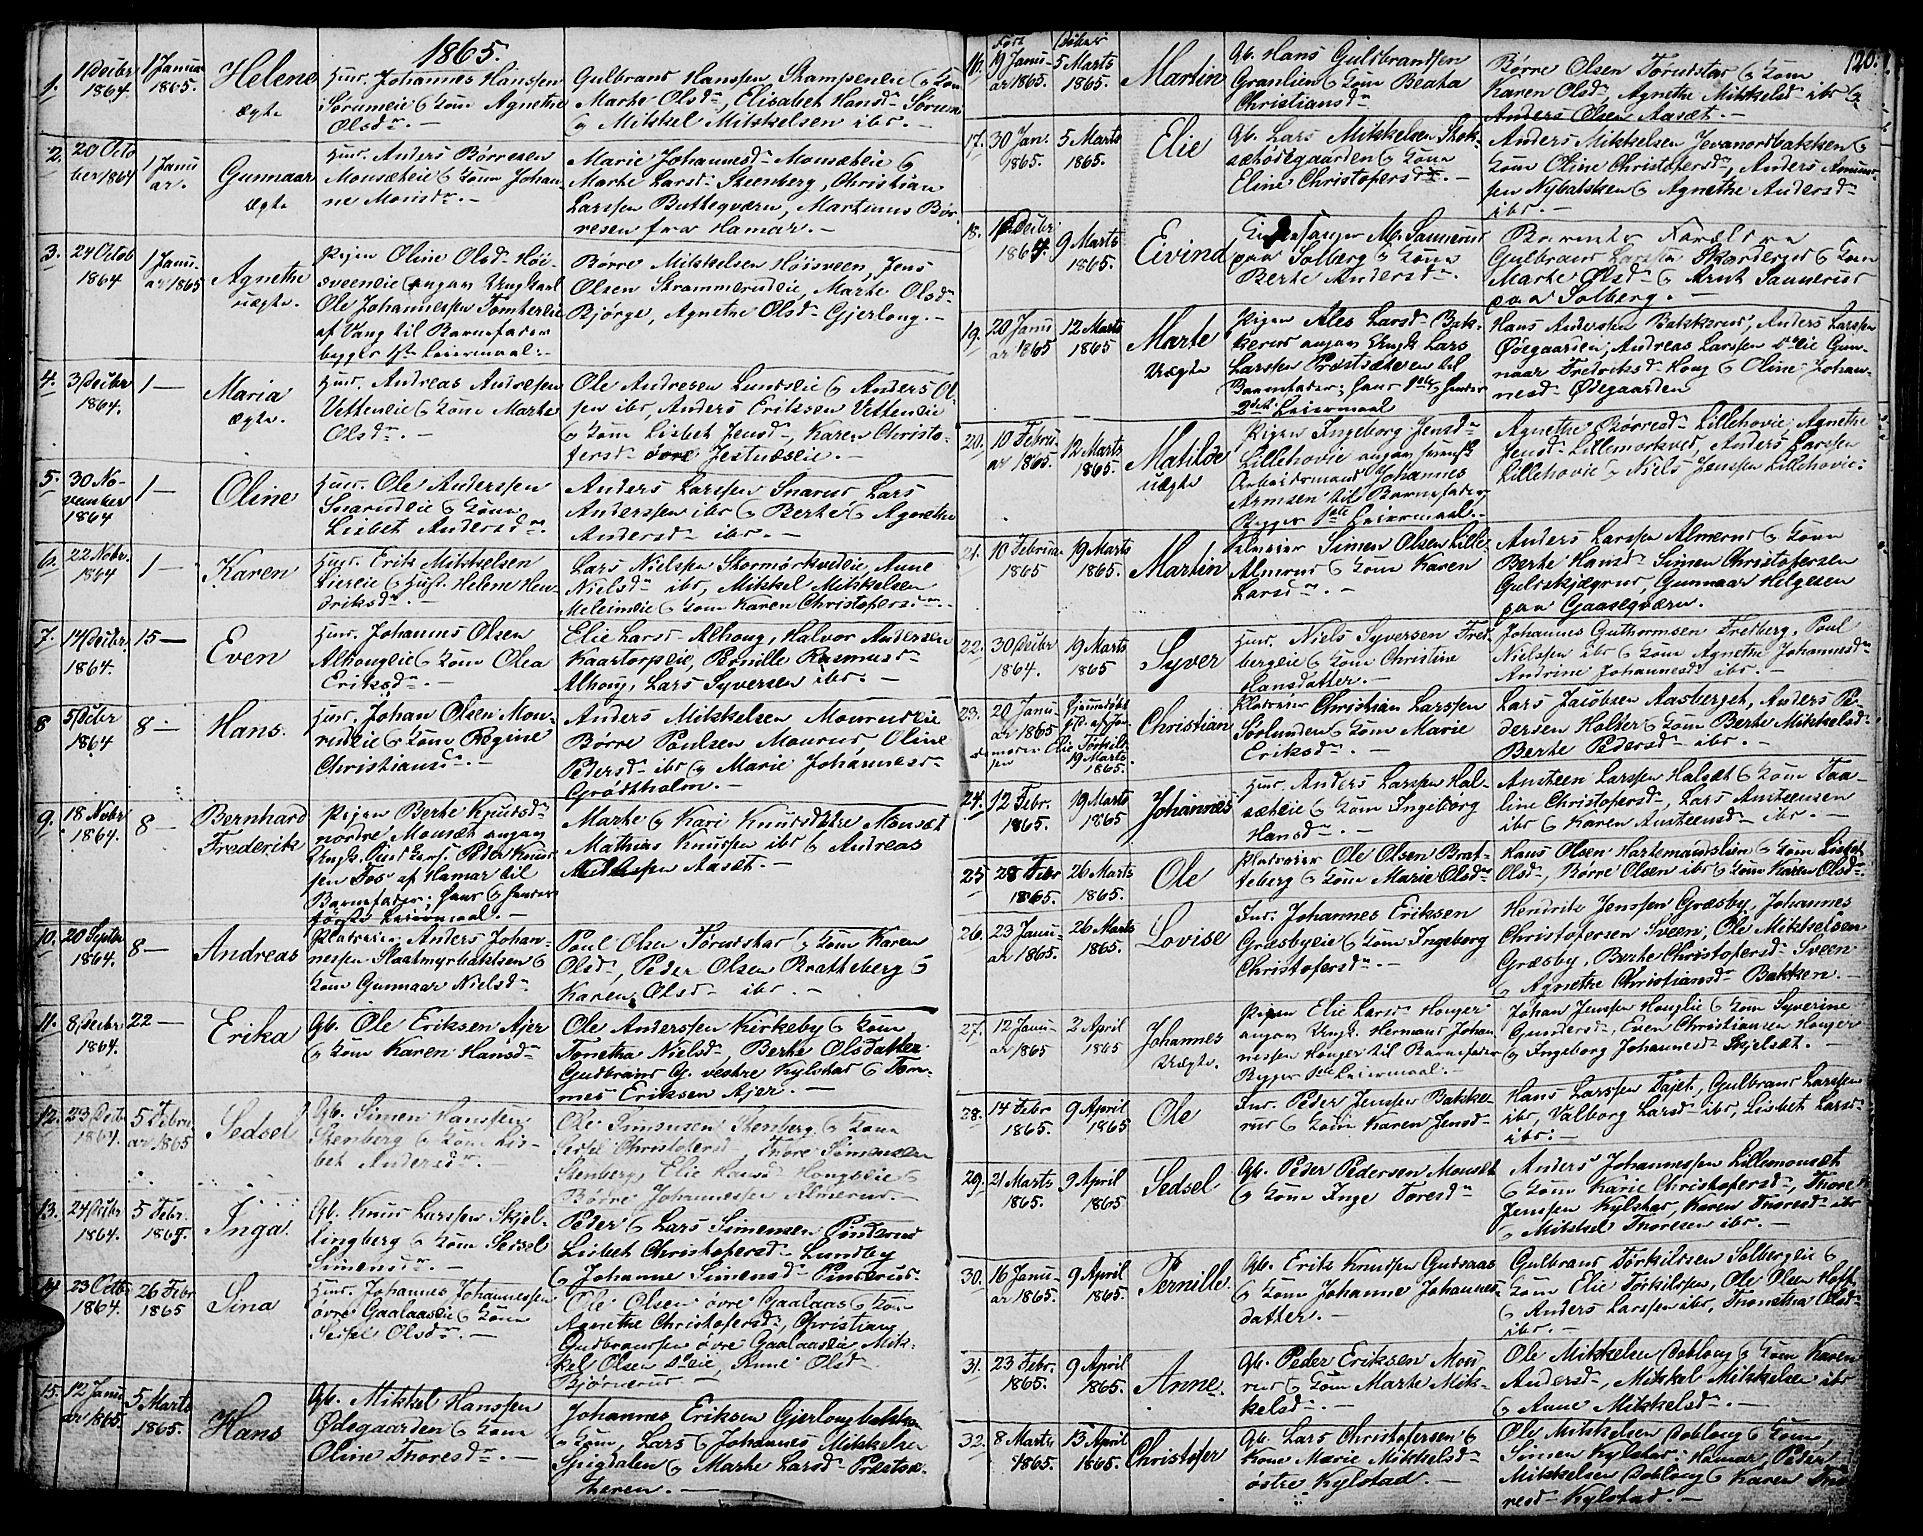 1865.
1.
1 Decbr 1864.
1 Januar 1865.
Helene
ægte
Huus. Johannes Hanssen
Sørumeie & Kone Agnethe
Olsdr. –
Gulbrand Hanssen Stampeneie & Kone
Marthe Olsdr, Elisabet Hansdr Sørum
& Mikkel Mikkelsen ibr. –
2.
20 October 1864
1 Januar.
Gunnaar
ægte
Huus. Anders Børresen
Monsæteie & Kone Johanne Monsdr. –
Marie Johannesdr Monsæteie &
Marthe Larsdr Steenberg, Christian
Larssen Butteqværn, Martinus Børresen fra Hamar. –
3.
24 Octob 1864
1 Januar 1865
Agnethe
uægte.
Pigen Oline Olsdr Høisveeneie angav Ungkarl
Ole Johannessen Tomtereie
af Vang til Barnefader
begges 1ste Leiermaal. –
Børre Mikkelsen Høisveen, Jens
Olsen Strammerudeie, Marthe Olsdr
Bjørge, Agnethe Olsdr Gjerlong. –
4.
3 Decbr 1864.
1 –
Maria
ægte.
Huus. Andreas Andresen
Vetteneie & Kone Marthe
Olsdr. –
Ole Andresen Lundseie & Anders Olsen ibr, Anders Eriksen Vetteneie
& Kone Lisbet Jensdr, Karen Christofersdr øvre Jestnæseie. –
5.
30 November 1864
1 –
Oline
Huus. Ole Anderssen
Snarudeie & Kone
Lisbet Andersdr. –
Anders Larssen Snarud, Lars
Anderssen ibr & Berthe & Agnethe
Andersdr ibr. –
6.
22 Novbr. 1864
1 –
Karen
Huus. Erik Mikkelsen
Liereie & Hust. Helene Hendriksdr. –
Lars Nielssen Stormørkvedeie, Anne
Nielsdr ibr, Mikkel Mikkelsen
Meleimeie & Kone Karen Christofersdr –
7.
14 Decbr. 1864.
15 –
Even
Huus. Johannes Olsen
Alhougeie & Kone Olea
Eriksdr. –
Elie Larsdr Alhoug, Halvor Andersen
Kaartorpeie, Pernille Rasmusdr
Alhoug, Lars Syversen ibr. –
8
5 Decbr 1864
8 –
Hans.
Huus. Johan Olsen Mourudeie & Kone Regine
Christiansdr. –
Anders Mikkelsen Mourudeie
Børre Poulsen Mourud Oline
Pedersdr ibr & Marie Johannesdr
Grødtholm. –
9.
18 Novbr 1864.
8 –
Bernhard
Frederik
Pigen Berthe Knudsdr
nordre Monsæt angav
Ungk. Peder Knudsen Fos af Hamar til
Barnefader; hans & hendes
første Leiermaal. –
Marthe & Kari Knudsdøtre Monsæt
Mathias Knudsen ibr & Andreas
Aasæt. –
10.
20 Septer 1864.
8 –
Andreas
Pladseier Anders Johannessen Slaatmyrbakken &
Kone Gunnaar Nielsdr
Poul Olsen Tørudstad & Kone Karen
Olsdr, Peder Olsen Bratteberg &
Karen Olsdr ibr. –
11.
8 Decbr. 1864.
22 –
Erika
Gb. Ole Eriksen Ajer
& Kone Karen Hansdr
Ole Anderssen Kirkeby & Kone
Tonetha Nielsdr, Berthe Olsdatter
Gudbrand G. vestre Kylstad & Tommes Eriksen Ajer. –
12.
23 Octb 1864.
5 Februar 1865
Sedsel
Gb. Simen Hanssen
Stenberg & Kone Lisbet Andersdr. –
Ole Simensen Stenberg & Kone
Sedsel Christofersdr, Thore Simensen
Stenberg, Elie Hansdr Hougseie &
Børre Johannessen Almerud. –
13.
24 Decbr 1864.
5 Febr. 1865.
Inga.
Gb. Knud Larssen Skjellingberg & Kone Sedsel
Simensdr. –
Peder & Lars Simensen Pinderud
Lisbet Christofersdr Lundby
& Johanne Simensdr Pinderud. –
14
23 Octb 1864.
26 Febr 1865
Sina
Huus. Johannes Johannessen
øvre Gaalaaseie & Kone
Sedsel Olsdr. –
Ole Olsen øvre Gaalaas & Kone
Agnethe Christofersdr, Christian
Gudbrandsen øvre Gaalaaseie, Mikkel Olsen deie, Anne Olsdr
Bjørnerud –
15.
12 Januar 1865.
5 Marts 1865.
Hans
Gb. Mikkel Hanssen
Ødegaarden & Kone
Oline Thoresdr. –
Johannes Eriksen Gjerlougbakken
& Kone, Lars & Johannes Mikkelsen
Spigdalen & Marthe Larsdr Præstsæteren. –
120.
Født Døbt
16.
19 Januar 1865.
5 Marts 1865.
Martin
Gb. Hans Gulbrandsen
Granlien & Kone Beatha
Christiansdr
Børre Olsen Tørudstad & Kone
Karen Olsdr Agnethe Mikkelsdr ibr &
Anders Olsen Aasæt. –
17.
30 Jan. 1865.
5 Marts 1865.
Elie
Gb. Lars Mikkelsen Stoksæhødegaarden & Kone
Eline Christofersdr. –
Anders Mikkelsen Jevanordbakken &
Kone Oline Christofersdr, Anders Amundsen Nybakken & Agnethe Andersdr
ibr. –
18.
1 Decbr 1864.
9 Marts 1865.
Eivind
Kirkesanger M. Sannerud
paa Solberg & Kone
Berthe Andersdr. –
Barnets Forældre
Gulbrand Larssen Skarderud & Kone
Marthe Olsdr & Arnt Sannerud
paa Solberg. –
19.
20 Januar 1865
12 Marts 1865
Marthe
Uægte
Pigen Ales Larsdr Bakkerud angav Ungk Lars
Larssen Præstsæteren til
Barnefader; hans 1ste, hendes
2det Leiermaal
Hans Andersen Bakkerud, Anders Larssen
Ødegaarden, Andreas Larssen deie Gunnaar Fredriksdr Houg & Oline Johannesdr Ødegaarden
20.
10 Februar 1865.
12 Marts 1865.
Matilde
uægte
Pigen Ingeborg Jensdr
Lillehovie angav
Arbeidsmand Johannes
Arnesen til Barnefader
Begges 1ste Leiermaal. –
Agnethe Børresdr Lillehovie, Agnethe
Jensdr Lillemørkved, Anders Larsen
Lillehovie & Niels Jenssen Lillehovie.
21.
10 Februar 1865
19 Marts 1865.
Martin
Simen Olsen Lille-Almerud & Kone Karen
Larsdr. –
Anders Larssen Almerud & Kone
Berthe Hansdr Simen Christofersen
Gulrskjægrud, Gunnaar Helgesen
paa Gaaseqværn.
22.
30 Decbr 1864.
19 Marts 1865
Syver
Huus. Niels Syversen Fredbergeie & Kone Christine
Hansdatter. –
Johannes Guthormsen Fredberg, Poul
Nielssen ibr & Kone Agnethe Johannesdr
Andrine Johannesdr ibr. –
23.
20 Januar 1865
19 Marts 1865.
Christian
Pladseier Christian Larssen
Sørlunden & Kone Marie
Eriksdr. –
Lars Jacobsen Aasberget, Anders Pedersen Holset & Kone Berthe Mikkelsdr
Berthe Pedersdr ibr. –
24.
12 Febr. 1865.
19 Marts 1865
Johannes
Huus. Anders Larssen Halsæteie & Kone Ingeborg
Hansdr. –
Austeen Larssen Halsæt & Kone Taaline Christofersdr, Lars Austeensen
ibr & Karen Austeensdr ibr. –
25
28 Febr 1865.
26 Marts 1865.
Ole
Pladseier Ole Olsen Bratteberg & Kone Marie Olsdr
Hans Olsen Hartemandslien & Kone Lisbet
Olsdr, Børre Olsen ibr & Kone Karen Olsdr.
26.
23 Januar 1865.
26 Marts 1865.
Lovise
Ind. Johannes Eriksen
Græsbyeie & Kone Ingeborg
Christofersdr. –
Hendrik Jenssen Græsby, Johannes
Christofersen Sveen, Ole Mikkelsen
Græsby, Berthe Christofersdr Sveen
& Agnethe Christiansdr Bakken –
27.
12 Januar 1865
2 April 1865
Johannes
Uægte.
Pigen Elie Larsdr Houger
angav Ungk. Hermand Johannessen Houger til Barnefader
Begges 1ste Leiermaal. –
Johan Jenssen Houglie & Kone Syverine
Gundersdr, Even Christiansen Houger
& Ingeborg Johannesdr Skjelsæt. –
28.
14 Febr 1865.
9 April 1865
Ole
Ind. Peder Jenssen Bakkerud & Kone Karen Jensdr –
Hans Larssen Fajet, Gulbrand Larssen
ibr, Valborg Larsdr ibr, Lisbet Larsdr
ibr. –
29.
21 Marts 1865.
9 April 1865
Sedsel
Gb. Peder Pedersen Monsæt
& Kone Inge Toresdr
Anders Johannessen Lillemonsæt
& Kone Karie Christofersdr, Thore
Jenssen Kylstad, Karen Thoresdr ibr
& Mikkel Thoresen ibr. –
30.
16 Januar 1865.
9 April 1865.
Pernille.
Gb. Erik Knudsen Gudsaas
& Kone Johanne Johannesdatter. –
Gulbrand Tørkilsen Solbergeie &
Kone Elie Tørkilssen, Ole Olsen Hoff
& Anders Larssen ibr, Thonetha Olsdr
ibr. –
31.
23 Febr. 1865.
9 April 1865.
Anne.
Gb. Peder Eriksen Mourud & Kone Marthe Mikkelsdr. –
Ole Mikkelsen Doblong & Kone Karen
Andersdr, Mikkel Mikkelsen ibr
& Anne Mikkelsdr. –
32.
8 Marts 1865.
13 April 1865.
Christofer
Gb. Lars Christofersen &
Kone Marie Mikkelsdr
østre Kylstad. –
Ole Mikkelsen Doblong & Kone,
Simen Kylstad, Hamar, Peder
Mikkelsen Doblong & Karen Thoresdr Kylstad. –